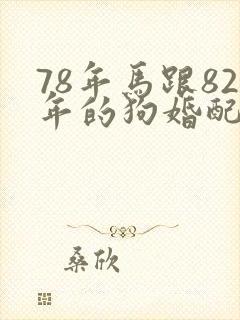 78年馬跟82
年的狗婚配
桑欣